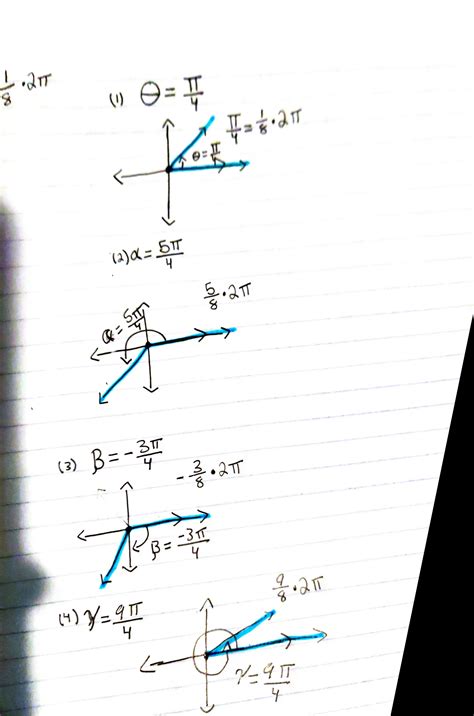 1/8 · 2π
(1) θ = π/4
π/4 = 1/8 · 2π
θ = π/4
(2) α = 5π/4
5/8 · 2π
α = 5π/4
(3) β = -3π/4
-3/8 · 2π
β = -3π/4
(4) γ = 9π/4
9/8 · 2π
γ = 9π/4